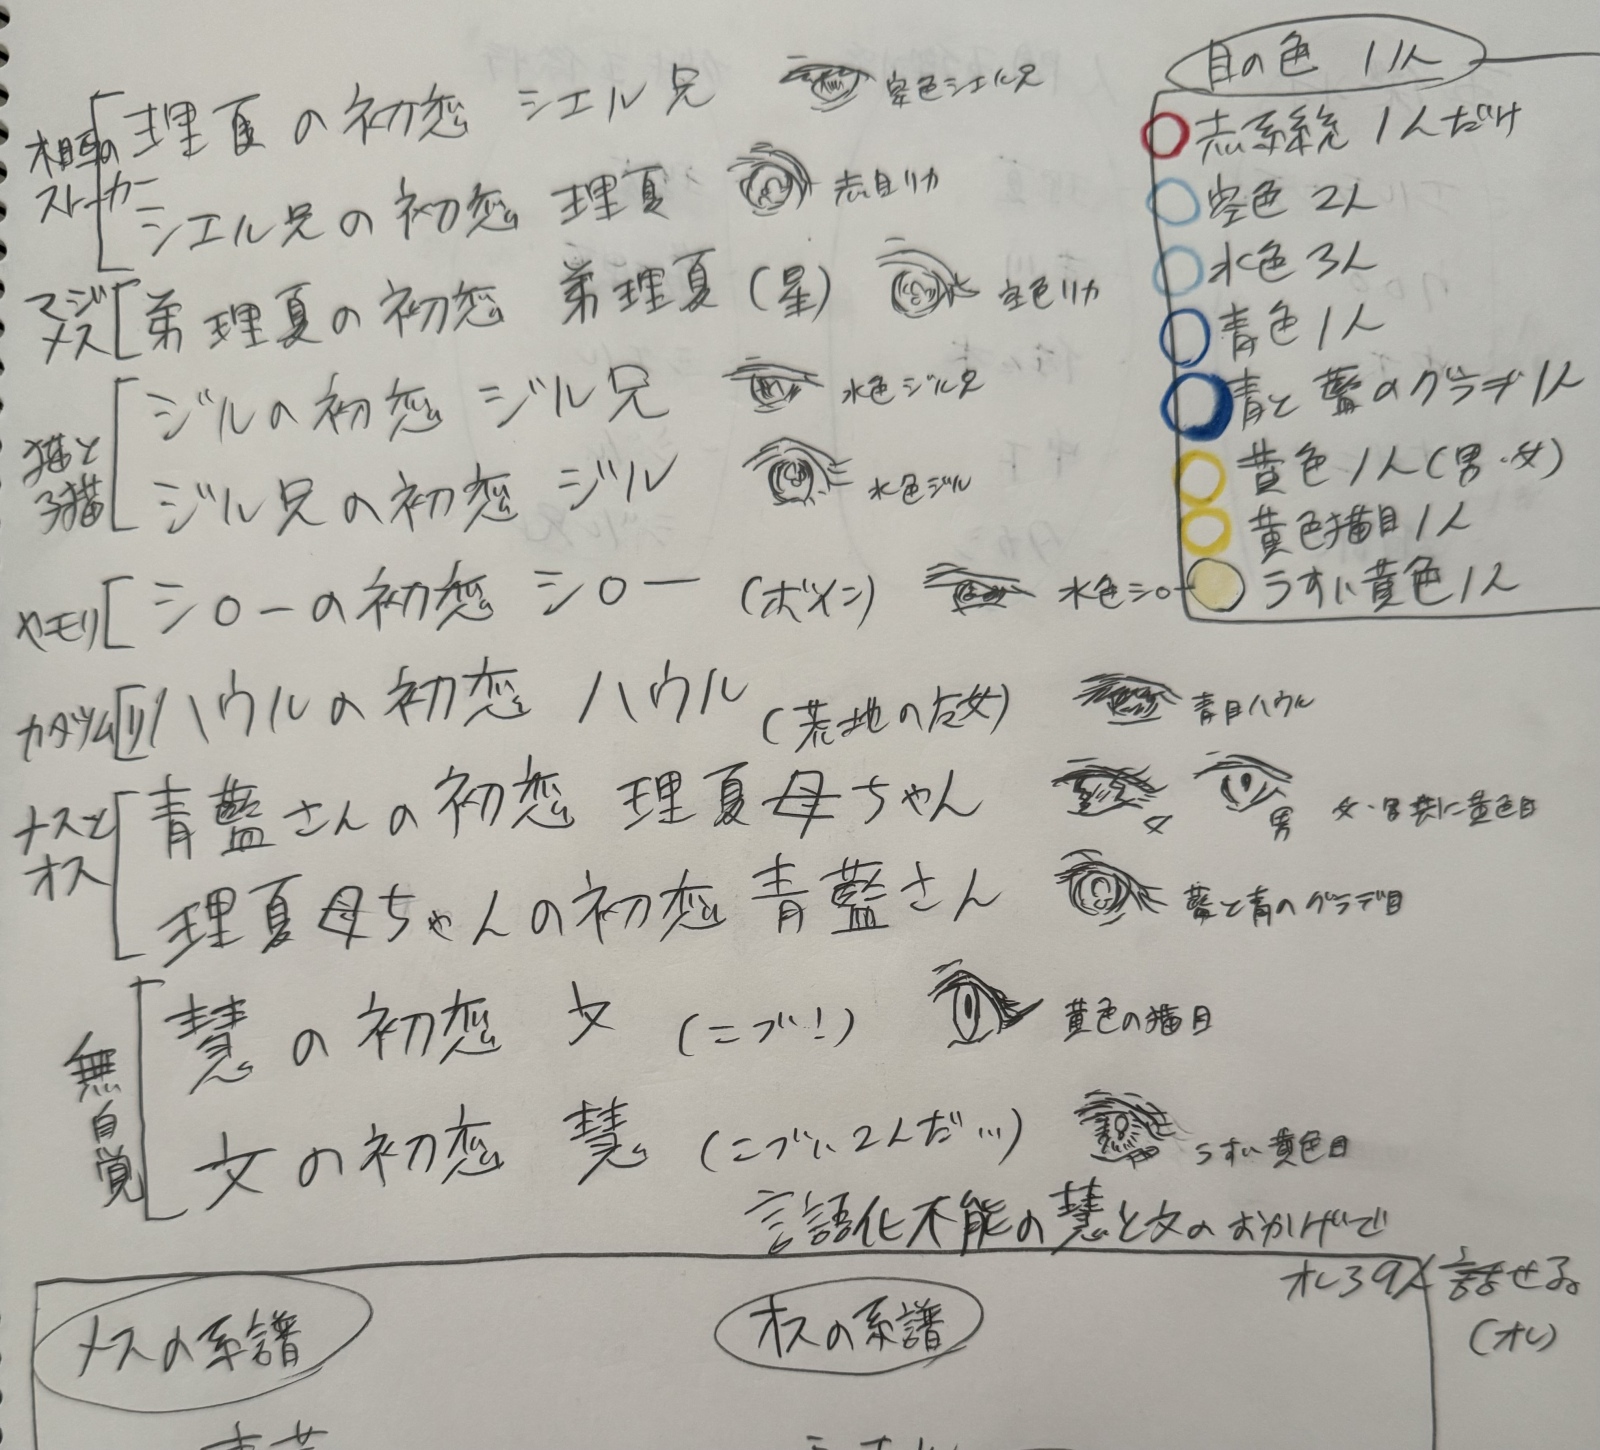 目の色 11人
赤系統 1人だけ
空色 2人
水色 3人
青色 1人
青と藍のグラデ 1人
黄色 1人 (男・女)
黄色猫目 1人
うすい黄色 1人
相互のストーカー
理夏の初恋 シエル兄 空色シエル兄
シエル兄の初恋 理夏 赤目リカ
マジメス
弟理夏の初恋 弟理夏 (星) 空色リカ
猫と子猫
ジルの初恋 ジル兄 水色ジル兄
ジル兄の初恋 ジル 水色ジル
ヤモリ
シローの初恋 シロー (ボメン) 水色シロー
カタツムリ
ハウルの初恋 ハウル (荒地の左女) 青目ハウル
ナスとオス
青藍さんの初恋 理夏母ちゃん 女 男 女・男共に黄色目
理夏母ちゃんの初恋 青藍さん 藍と青のグラデ目
無自覚
慧の初恋 文 (こブ!) 黄色の猫目
文の初恋 慧 (こブい2人だ…) うすい黄色目
言語化不能の慧と文のおかげで
オレ39人話せる。
(オレ)
メスの系譜
オスの系譜